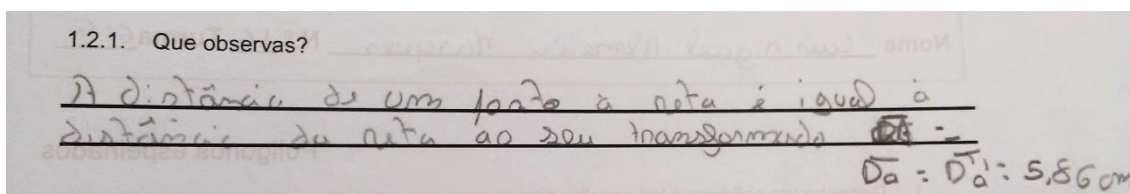 1.2.1. Que observas?
A distância de um ponto à reta é igual à
distância da reta ao seu transformado
Da = Da' = 5,86 cm